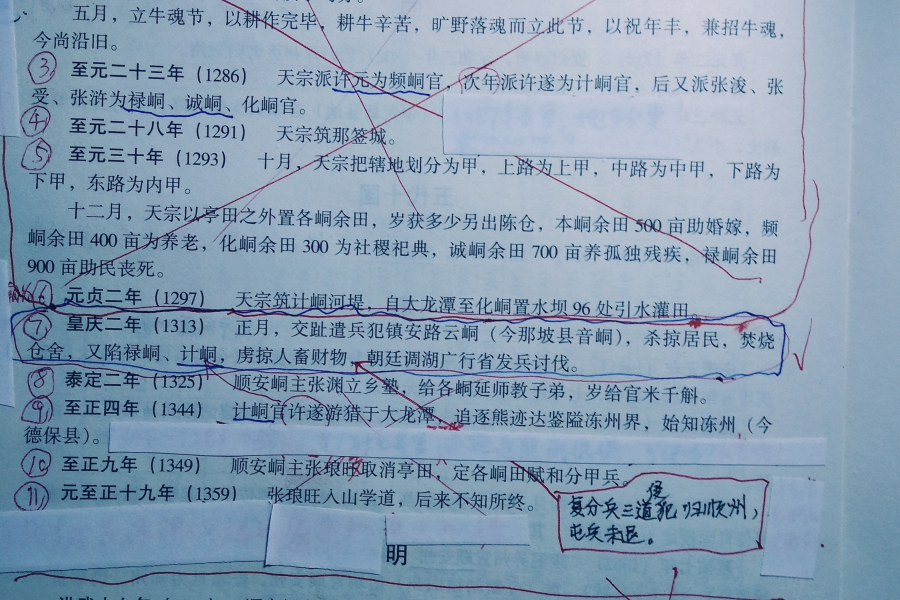 五月，立牛魂节，以耕作完毕，耕牛辛苦，旷野落魂而立此节，以祝年丰，兼招牛魂，
今尚沿旧。
③ 至元二十三年（1286） 天宗派许元为频峒官，次年派许遂为计峒官，后又派张浚、张
受、张浒为禄峒、诚峒、化峒官。
④ 至元二十八年（1291） 天宗筑那签城。
⑤ 至元三十年（1293） 十月，天宗把辖地划分为甲，上路为上甲，中路为中甲，下路为
下甲，东路为内甲。
十二月，天宗以亭田之外置各峒余田，岁获多少另出陈仓，本峒余田 500 亩助婚嫁，频
峒余田 400 亩为养老，化峒余田 300 为社稷祀典，诚峒余田 700 亩养孤独残疾，禄峒余田
900 亩助民丧死。
⑥ 元贞二年（1297） 天宗筑计峒河堤，自太龙潭至化峒置水坝 96 处引水灌田。
⑦ 皇庆二年（1313） 正月，交趾遣兵犯镇安路云峒（今那坡县音峒），杀掠居民，焚烧
仓舍，又陷禄峒、计峒，虏掠人畜财物，朝廷调湖广行省发兵讨伐。
⑧ 泰定二年（1325） 顺安峒主张渊立乡塾，给各峒延师教子弟，岁给官米千斛。
⑨ 至正四年（1344） 计峒官许遂游猎于大龙潭，追逐熊迹达鉴隘冻州界，始知冻州（今
德保县）。
⑩ 至正九年（1349） 顺安峒主张琅旺取消亭田，定各峒田赋和分甲兵。
⑪ 元至正十九年（1359） 张琅旺入山学道，后来不知所终。
复分兵三道侵犯归顺州，
屯兵未退。
明